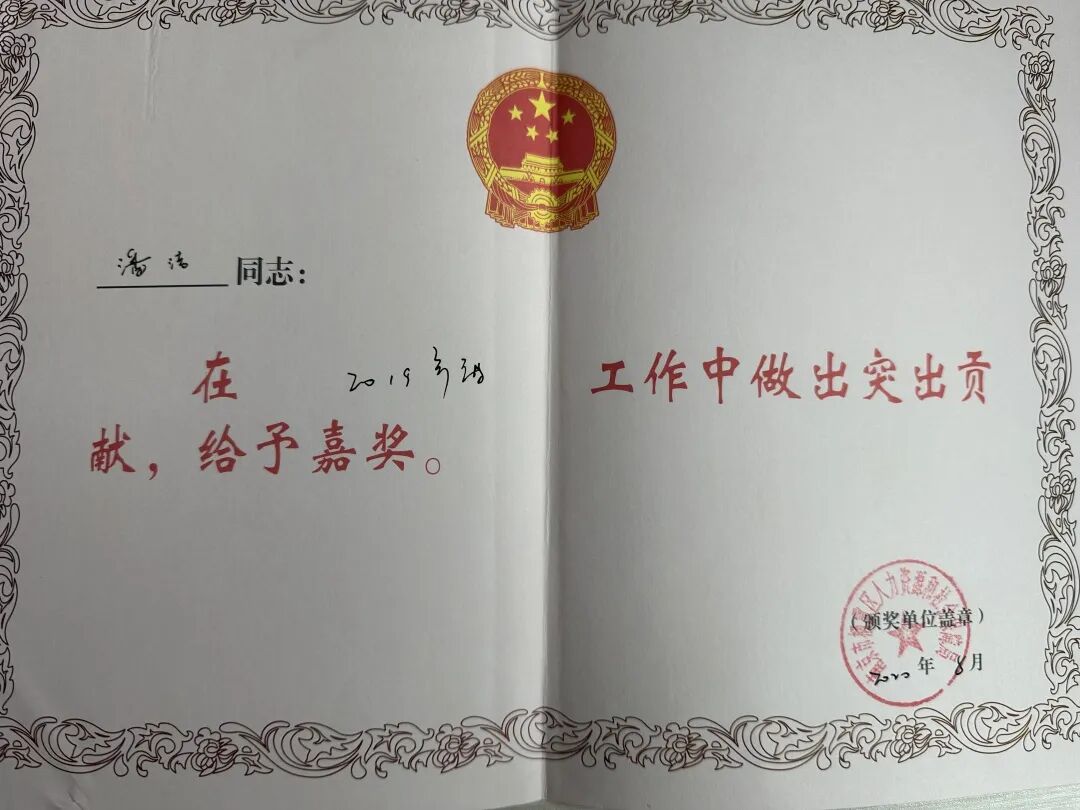 潘洁 同志：
在 2019年 工作中做出突出贡
献，给予嘉奖。
人力资源和社会保障局
（颁奖单位盖章）
2020 年 8 月